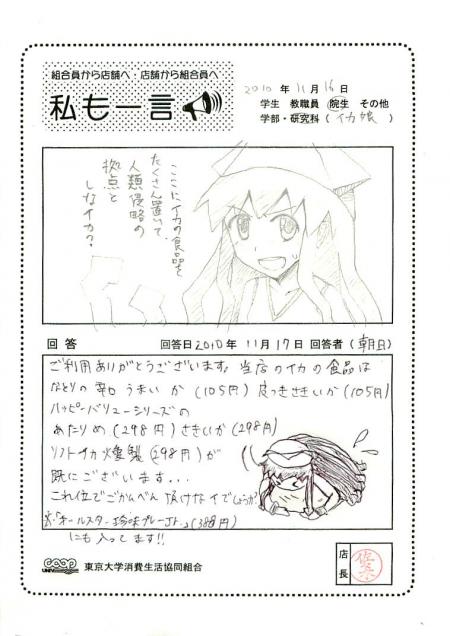 組合員から店舗へ・店舗から組合員へ
私も一言
2010年11月16日
学生 教職員 院生 その他
学部・研究科(イカ娘)
ここにイカの食品を
たくさん置いて、
人類侵略の
拠点と
しなイカ?
回答
回答日2010年11月17日 回答者(朝日)
ご利用ありがとうございます。当店のイカの食品は
なとりの 辛口 うまい か (105円) 皮つきさきいか (105円)
ハッピーバリューシリーズの
あたりめ (298円) さきいか (298円)
ソフトイカ燻製 (298円) が
既にございます...
これ位でごかんべん 頂けなイでしょうか?
※「オールスター珍味プレーJr.」(388円)
にも入ってます!!
店長
coop
UNIV
東京大学消費生活協同組合